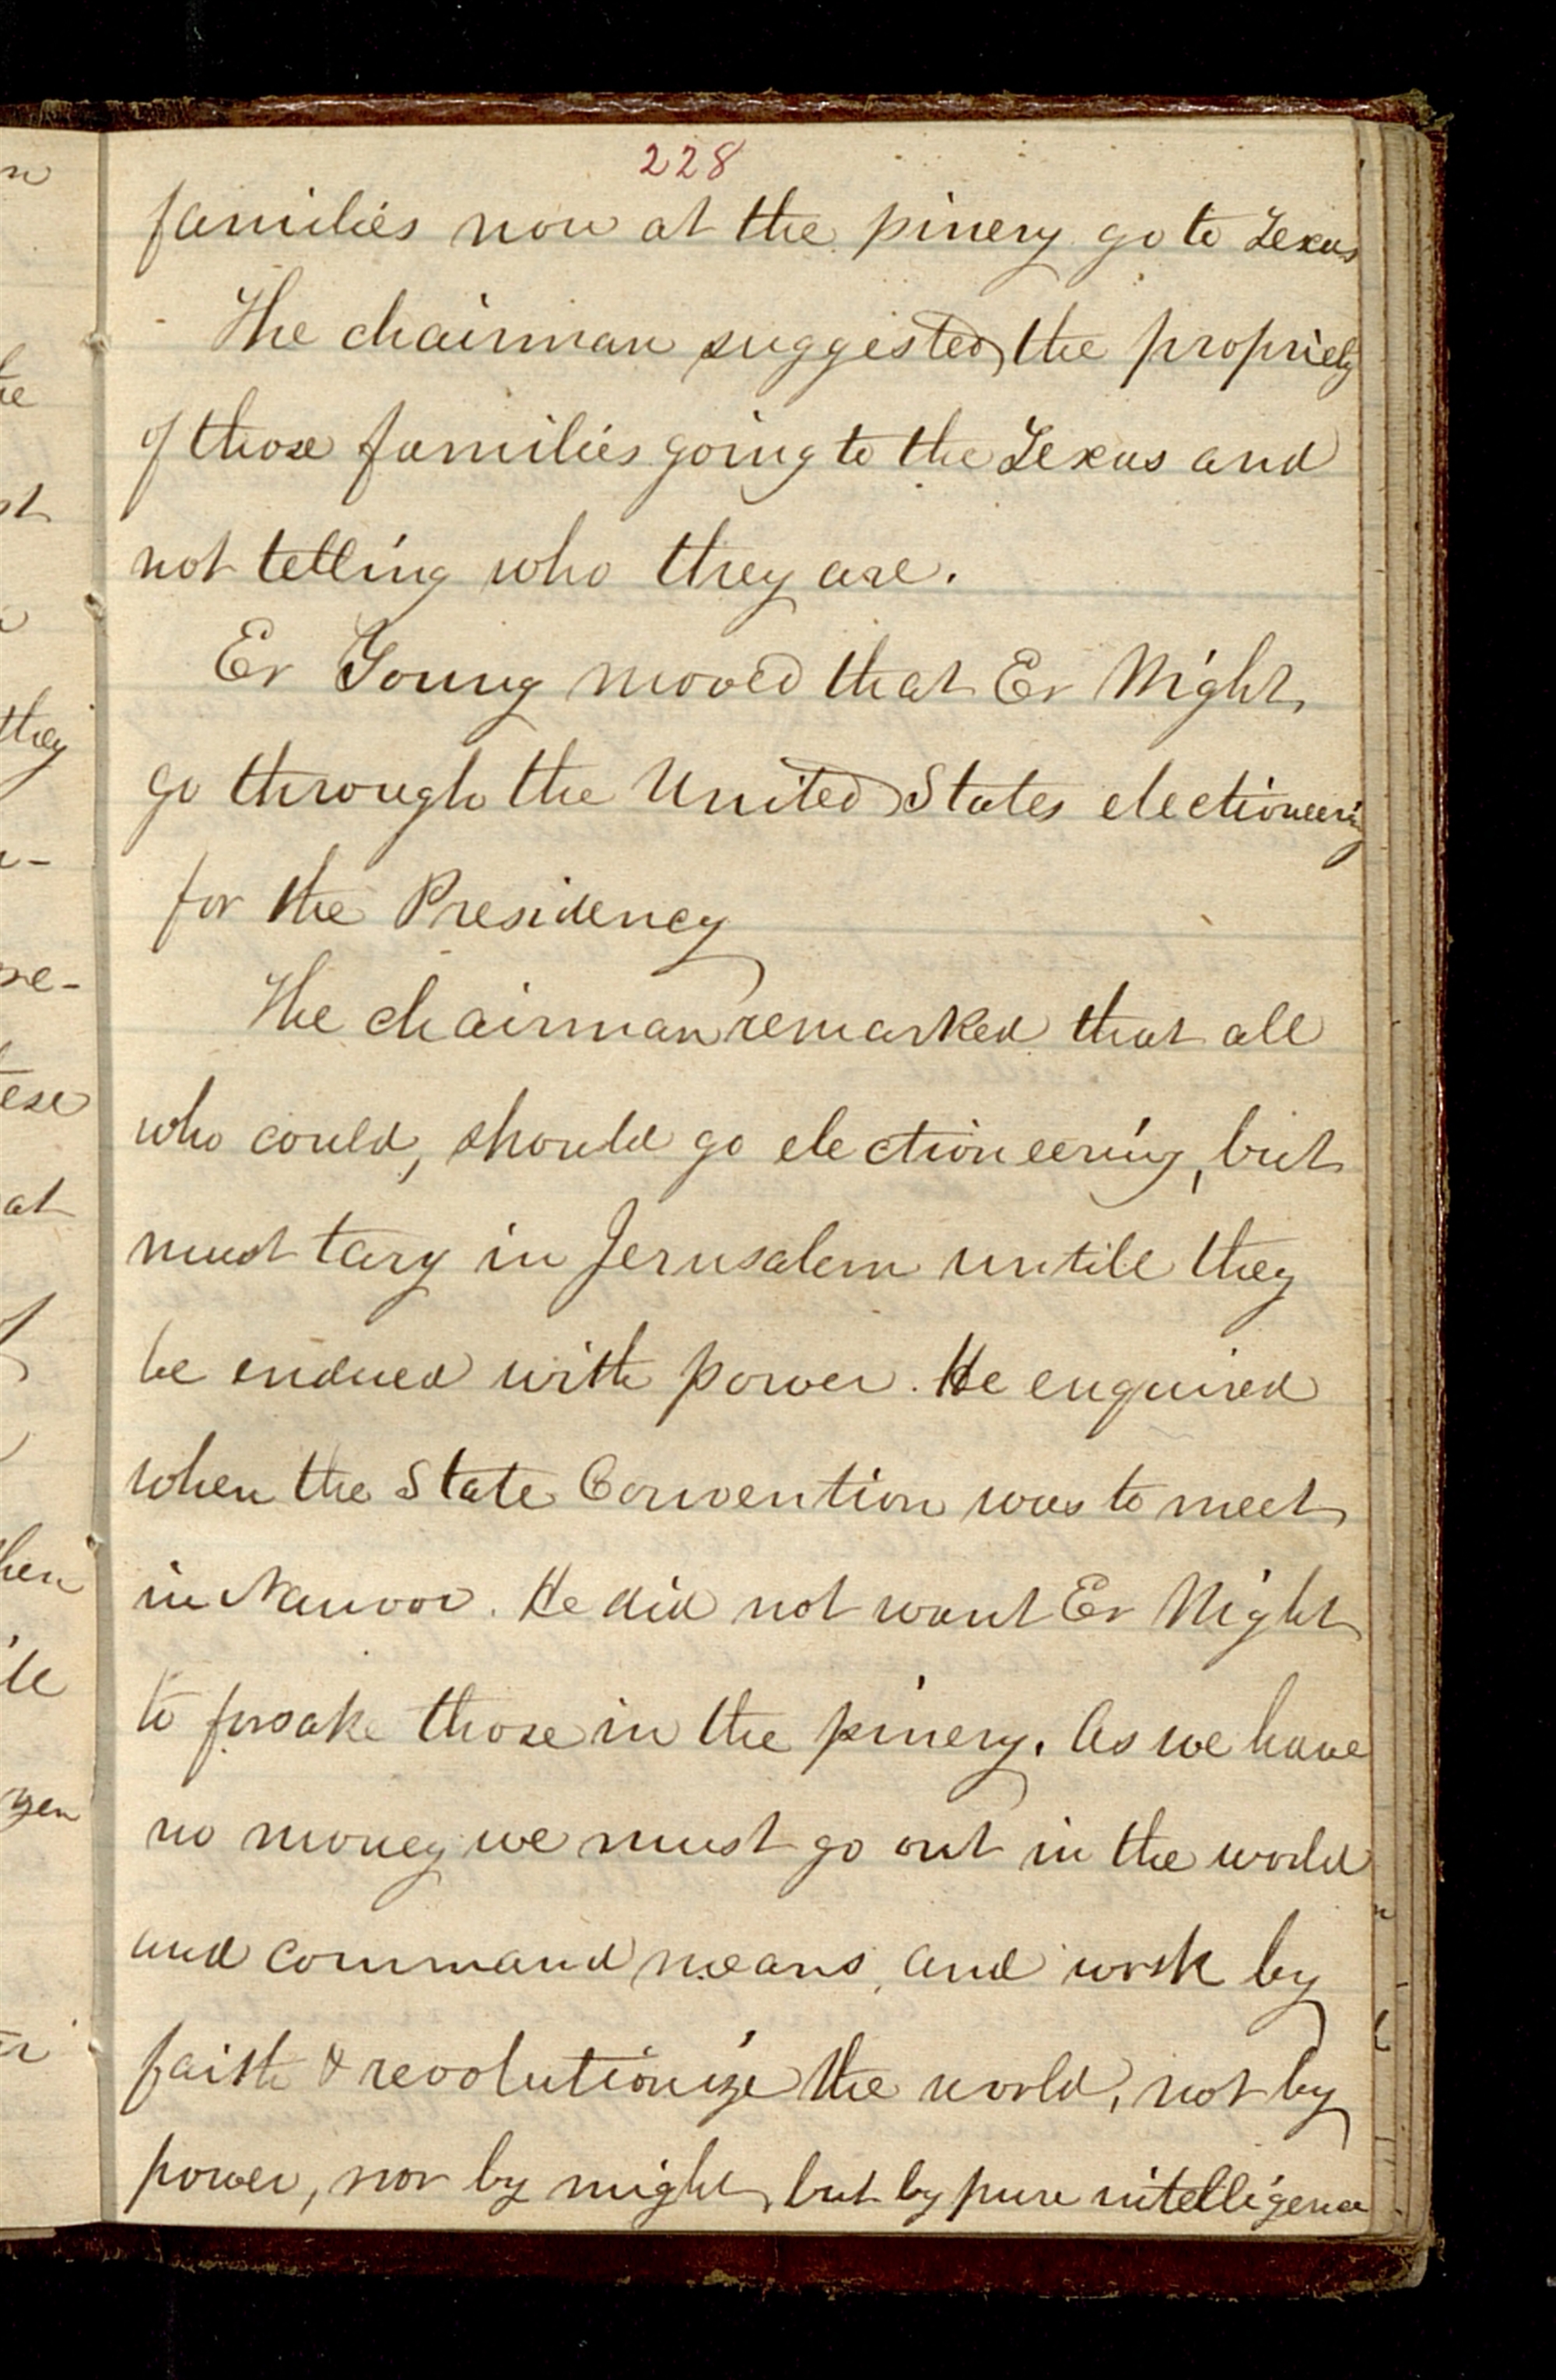 228
families now at the pinery go to Texas
The chairman suggested the propriety
of those families going to the Texas and
not telling who they are.
Er Young moved that Er Wight
go through the United States electioneering
for the Presidency
The chairman remarked that all
who could, should go electioneering, but
must tary in Jerusalem untill they
be endued with power. He enquired
when the State Convention was to meet
in Nauvoo. He did not want Er Wight
to forsake those in the pinery. As we have
no money we must go out in the world
and command means, and work by
faith & revolutionize the world, not by
power, nor by might, but by pure intelligence